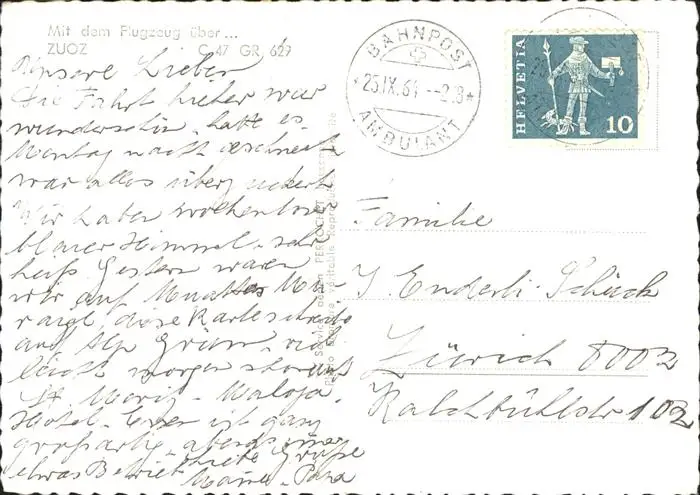 Mit dem Flugzeug über ...
ZUOZ C 47 GR 629
Unsere Lieben
Die Fahrt hieher war
wunderschön, hatte es
Montag nacht geschneit
war alles überzuckert
Wir haben wolkenlosen
blauer Himmel, sehr
heiß. Gestern waren
wir auf Muottas Mu-
raigl, diese Karte schreibe
auf Alp Grüm, viel
leicht morgen
St. Moritz - Maloja.
Hotel - Essen ist ganz
großartig, abends immer
etwas Betrieb. Grüße
Mama - Papa
BAHNPOST
25.IX.64 --2.8
AMBULANT
HELVETIA
10
Familie
J Enderli-Schück
Zürich 8003
Kalchbühlstr 102